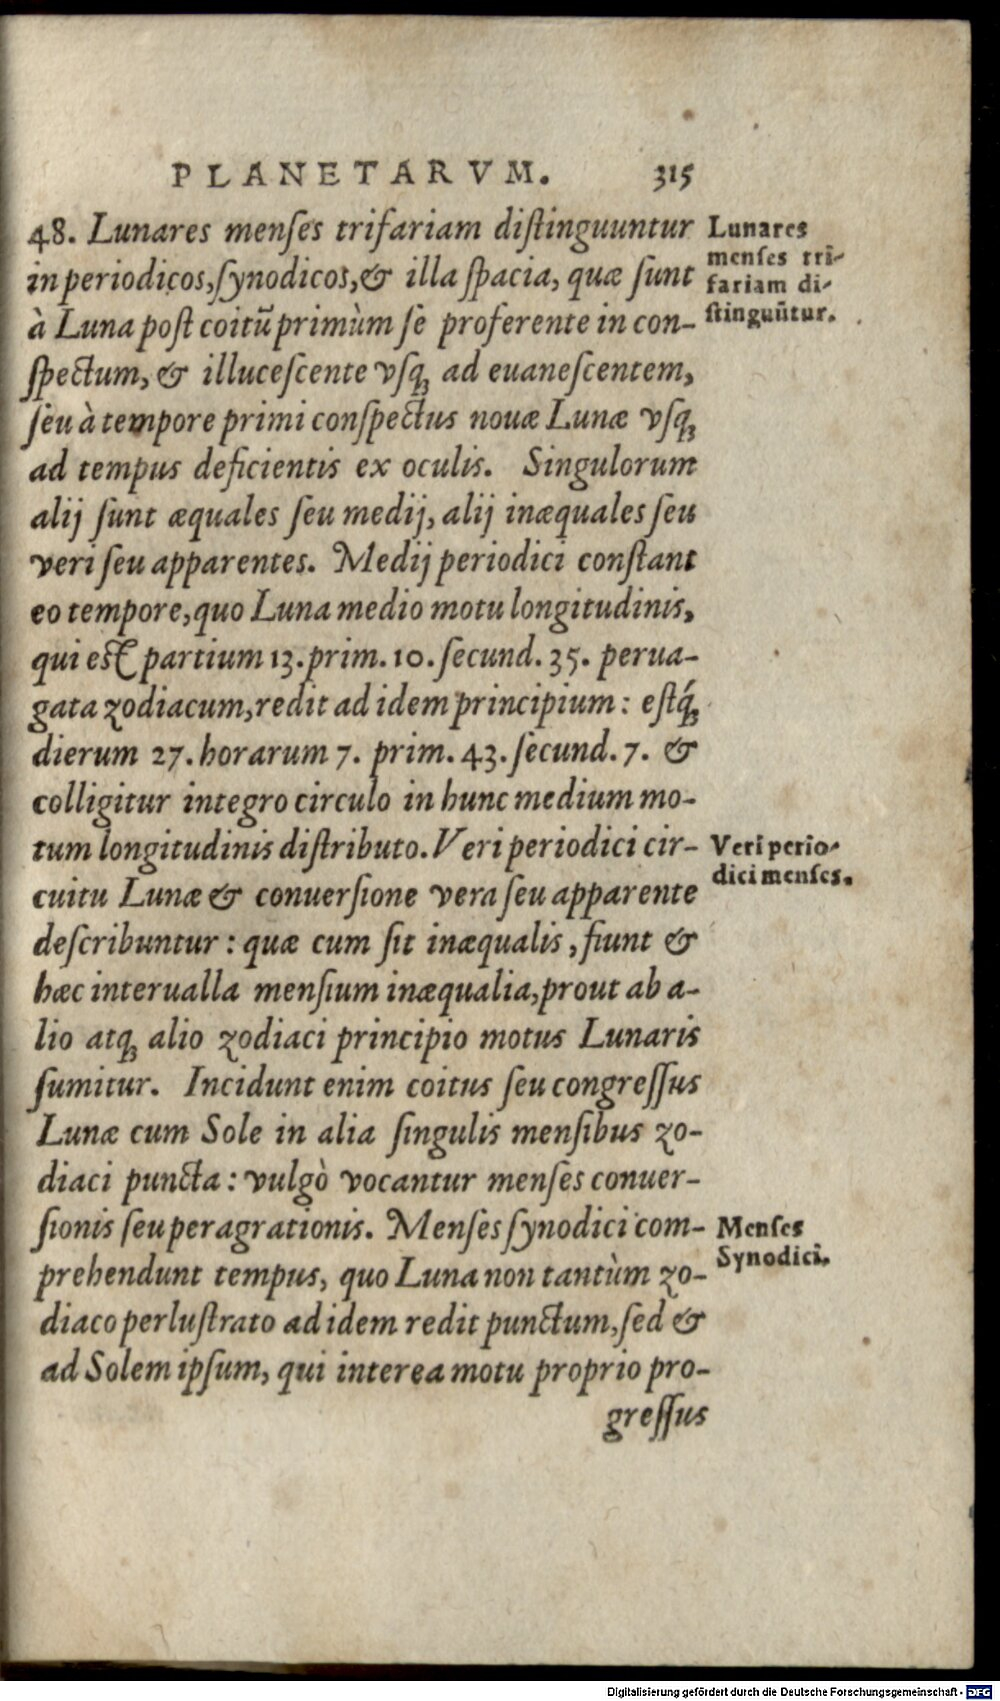 PLANETARVM. 315
48. Lunares menſes trifariam diſtinguuntur
in periodicos, ſynodicos, & illa ſpacia, quæ ſunt
à Luna poſt coitũ primùm ſe proferente in con-
ſpectum, & illucescente vſq; ad euanescentem,
ſeu à tempore primi conſpectus nouæ Lunæ vſq;
ad tempus deficientis ex oculis. Singulorum
alij ſunt æquales ſeu medij, alij inæquales ſeu
veri ſeu apparentes. Medij periodici conſtant
eo tempore, quo Luna medio motu longitudinis,
qui est partium 13. prim. 10. ſecund. 35. perua-
gata zodiacum, redit ad idem principium: eſtq́;
dierum 27. horarum 7. prim. 43. ſecund. 7. &
colligitur integro circulo in hunc medium mo-
tum longitudinis diſtributo. Veri periodici cir-
cuitu Lunæ & conuerſione vera ſeu apparente
deſcribuntur: quæ cum ſit inæqualis, fiunt &
hæc interualla menſium inæqualia, prout ab a-
lio atq; alio zodiaci principio motus Lunaris
ſumitur. Incidunt enim coitus ſeu congreſſus
Lunæ cum Sole in alia ſingulis menſibus zo-
diaci puncta: vulgò vocantur menſes conuer-
ſionis ſeu peragrationis. Menſes ſynodici com-
prehendunt tempus, quo Luna non tantùm zo-
diaco perluſtrato ad idem redit punctum, ſed &
ad Solem ipſum, qui interea motu proprio pro-
greſſus
Lunares
menſes tri-
fariam di-
ſtinguũtur.
Veri perio-
dici menſes.
Menſes
Synodici.
Digitalisierung gefördert durch die Deutsche Forschungsgemeinschaft - DFG